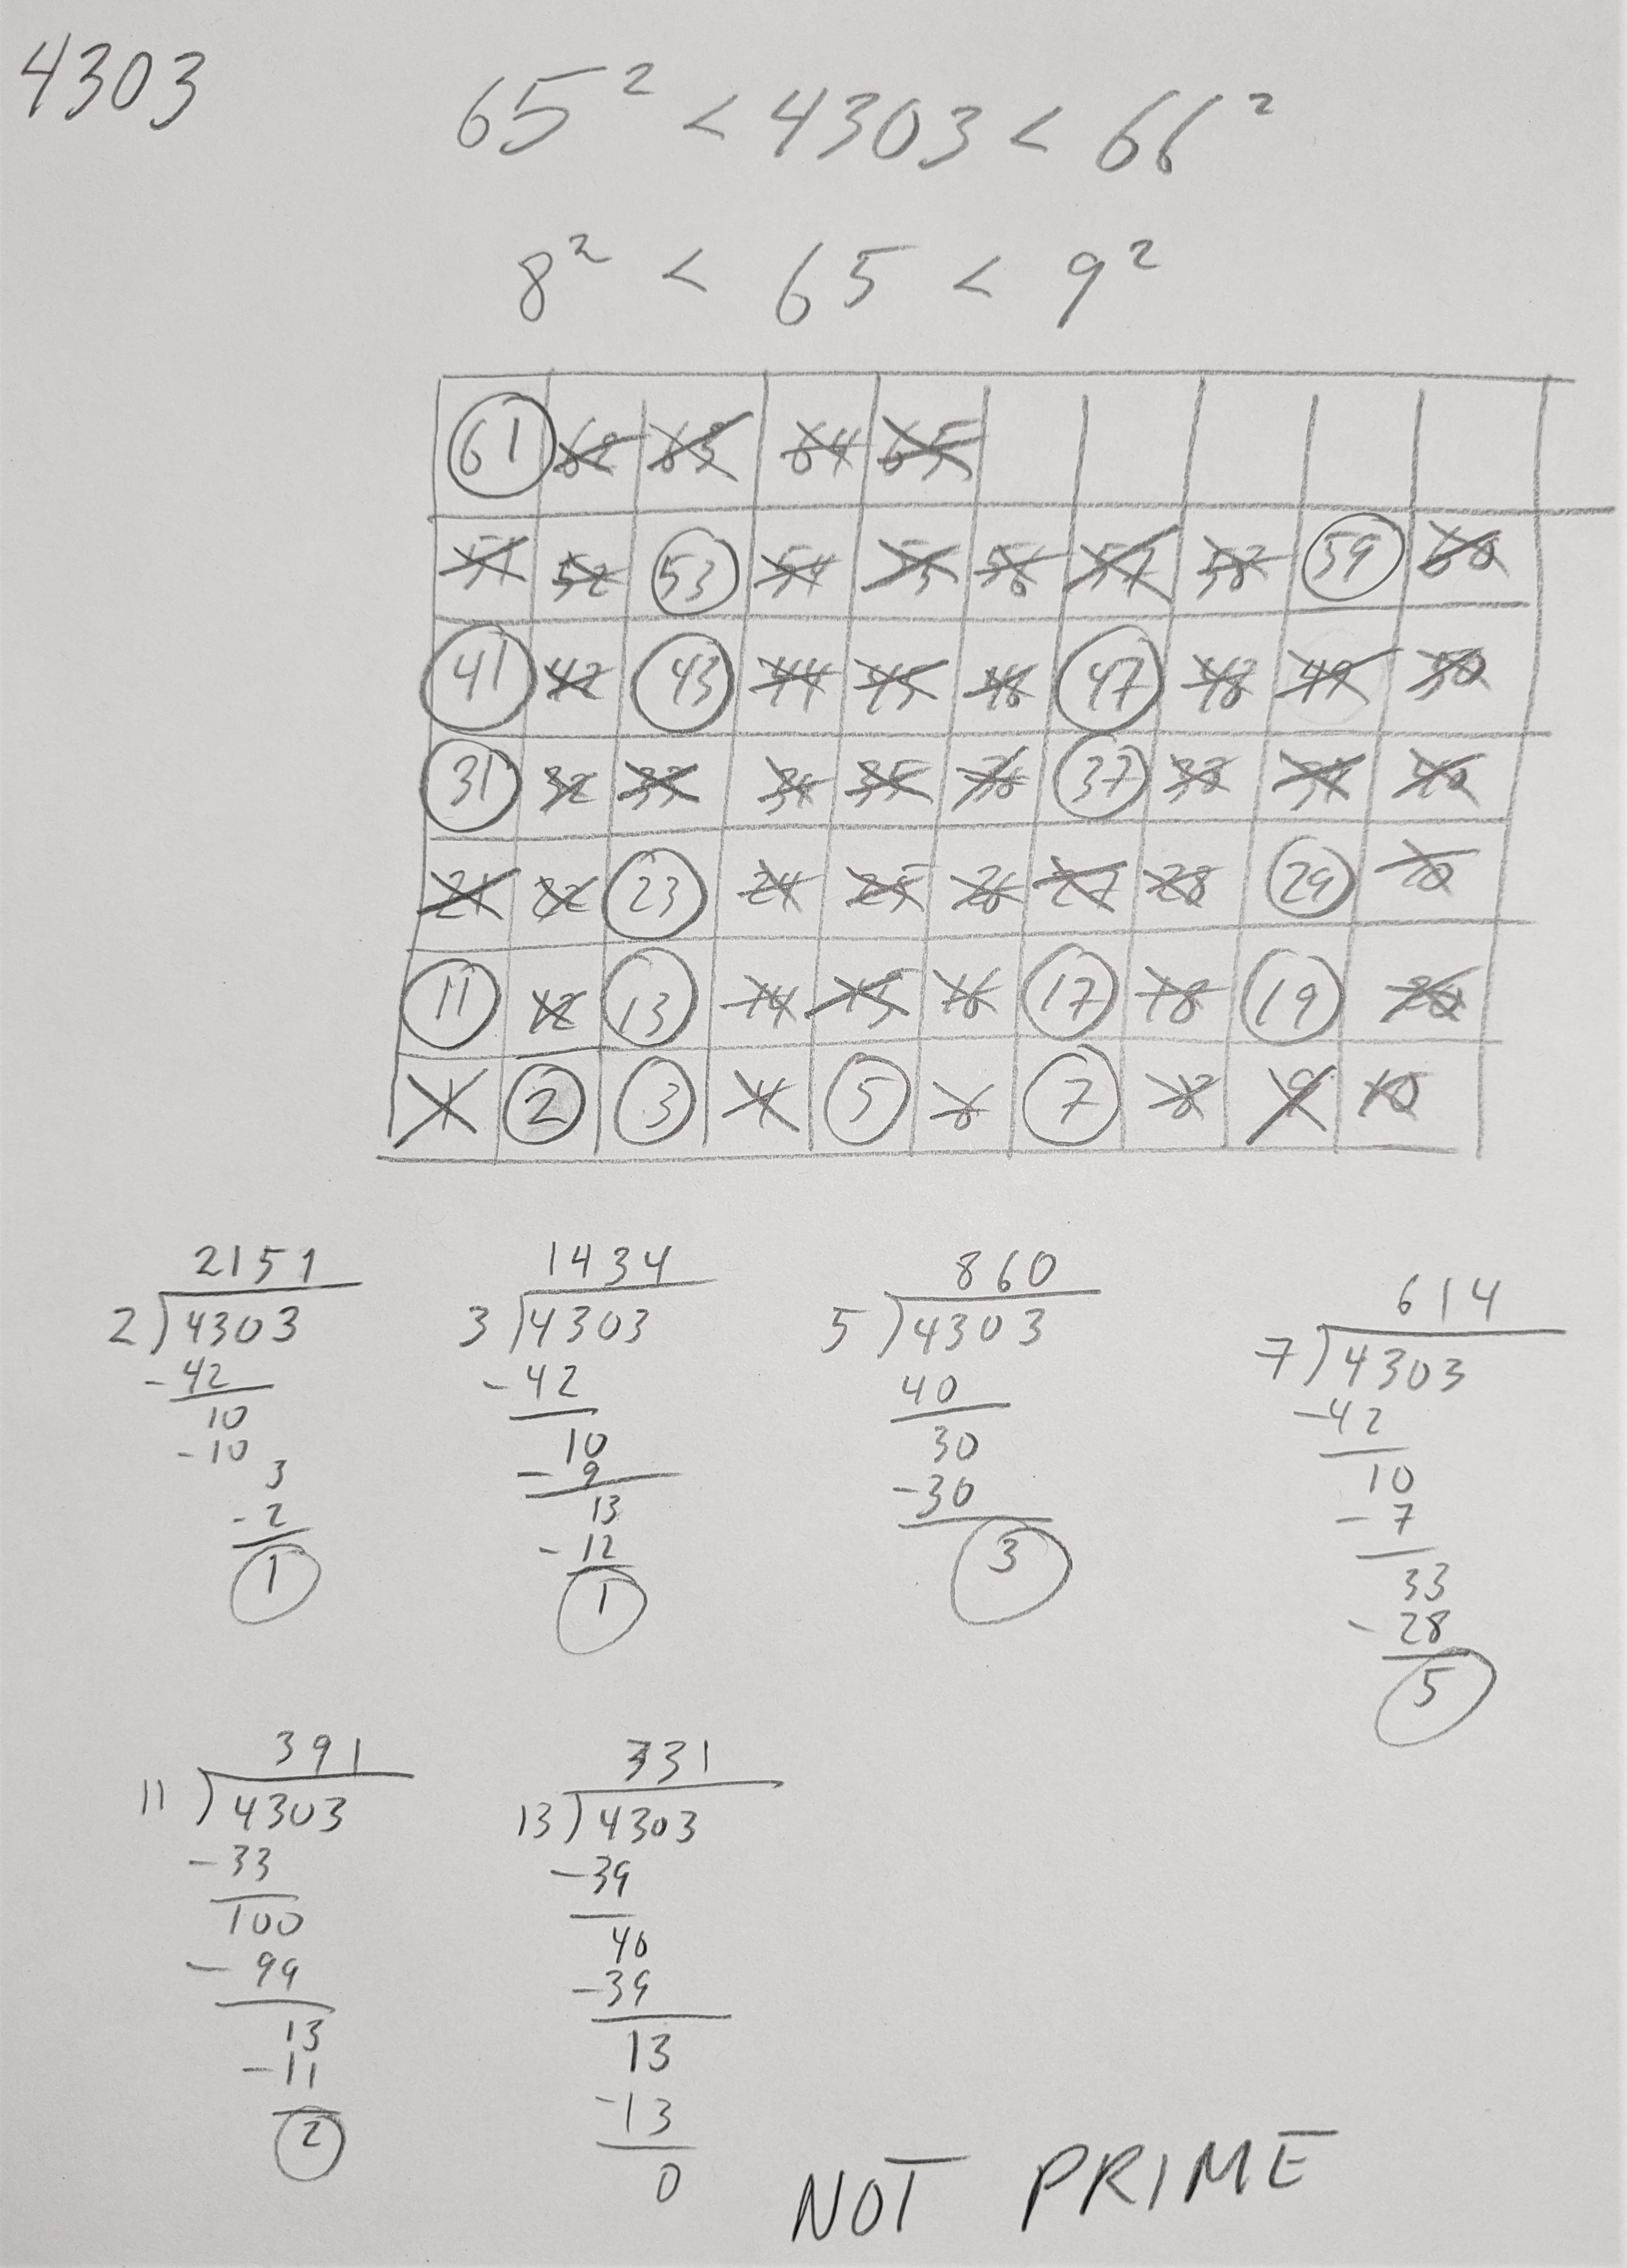 4303
65² < 4303 < 66²
8² < 65 < 9²
61 62 63 64 65
51 52 53 54 55 56 57 58 59 60
41 42 43 44 45 46 47 48 49 50
31 32 33 34 35 36 37 38 39 40
21 22 23 24 25 26 27 28 29
11 12 13 14 15 16 17 18 19 20
1 2 3 4 5 6 7 8 9 10
2151
2)4303
-42
10
-10
3
-2
1
1434
3)4303
-42
10
-9
13
-12
1
860
5)4303
40
30
-30
3
614
7)4303
-42
10
-7
33
-28
5
391
11)4303
-33
100
-99
13
-11
2
331
13)4303
-39
40
-39
13
-13
0
NOT PRIME